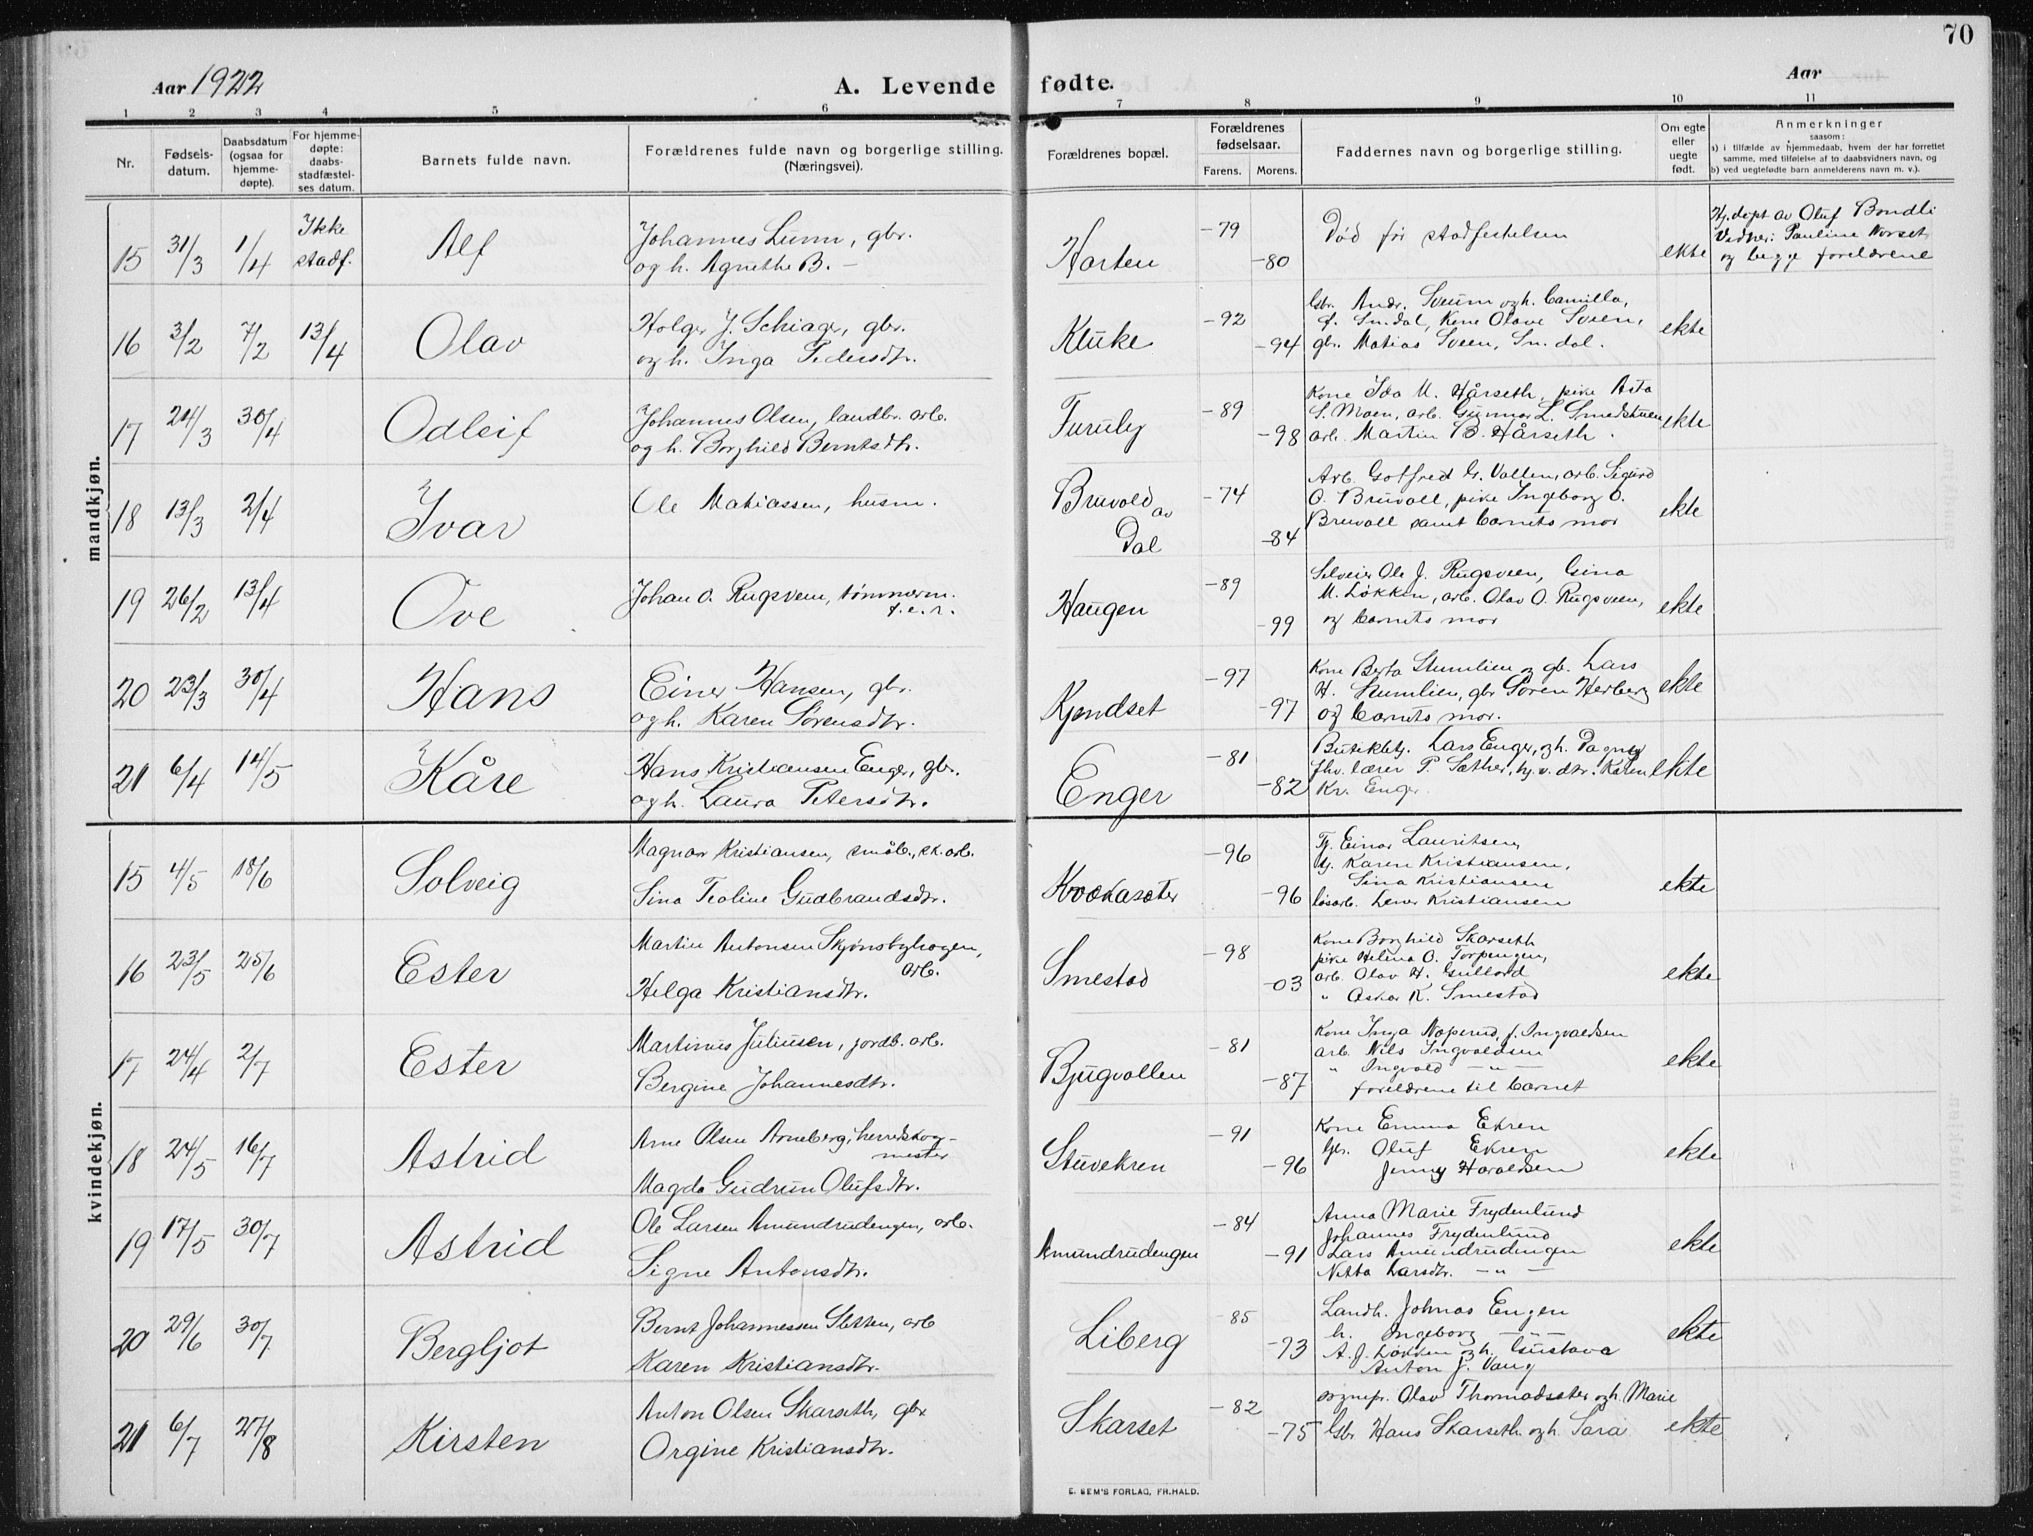 70
Aar 1922
A. Levende fødte.
Aar
1 2 3 4 5 6 7 8 9 10 11
Nr.
Fødsels-
datum.
Daabsdatum
(ogsaa for
hjemme-
døpte).
For hjemme-
døpte:
daabs-
stadfæstel-
ses datum.
Barnets fulde navn.
Forældrenes fulde navn og borgerlige stilling.
(Næringsvei).
Forældrenes bopæl.
Forældrenes
fødselsaar.
Farens. Morens.
Faddernes navn og borgerlige stilling.
Om egte
eller
uegte
født.
Anmerkninger
saasom:
a) i tilfælde av hjemmedaab, hvem der har forrettet
samme, med tilføielse af to daabsvidners navn, og
b) ved uegtefødte barn anmelderens navn m. v.).
mandkjøn.
15 31/3 1/4 Ikke
stadf.
Alf
Johannes Lunn, gbr.
og h. Agnethe B. -
Harten
-79
-80
Død før stadfestelsen
ekte
Hj.døpt av Oluf Bondli
Vidner: Pauline Norset
og begge forældrene
16 3/2 7/2 13/4
Olav
Holger J. Schiager, gbr.
og h. Inga Pedersdtr.
Kluke
-92
-94
Gbr. Andr. Sveum og h. Camilla,
f. Sn.dal, Kone Olave Sveen,
gbr. Matias Sveen, Sn.dal.
ekte
17 24/3 30/4
Odleif
Johannes Olsen, landbr. arb.
og h. Borghild Berntsdtr.
Furuly
-89
-98
Kone Ida M. Hårseth, pike Asta
S. Moen, arb. Gunnar L. Smedstuen
arb. Martin B. Hårseth.
ekte
18 13/3 2/4
Ivar
Ole Matiassen, husm.
Bruvold
av
Dal
-74
-84
Arb. Gotfred G. Vollen, arb. Sigurd
O. Bruvoll, pike Ingeborg O.
Bruvoll samt barnets mor
ekte
19 26/2 13/4
Ove
Johan O. Rugsveen, tømmerm.
f.e.r.
Haugen
-89
-99
Selveier Ole J. Rugsveen, Gina
M. Løkken, arb. Olav O. Rugsveen,
og barnets mor
ekte
20 23/3 30/4
Hans
Einer Hansen, gbr.
og h. Karen Sørensdtr.
Kjendset
-97
-97
Kone Berta Stumlien og gb. Lars
H. Stumlien, gbr Søren Herberg
og barnets mor.
ekte
21 6/4 14/5
Kåre
Hans Kristiansen Enger, gbr.
og h. Laura Petersdtr.
Enger
-81
-82
Butikbetj. Lars Enger, og h. Dagny
fhv. lærer P. Sæther, hj.v. dtr. Karen
Kr. Enger.
ekte
kvindekjøn.
15 4/5 18/6
Solveig
Magnar Kristiansen, småb., sk. arb.
Sina Teoline Gudbrandsdtr.
-96
-96
Tj. Einar Lauritsen,
tj. Karen Kristiansen,
Sina Kristiansen
løsarb. Kristiansen
ekte
16 23/5 25/6
Ester
Martin Antonsen Skjønsbyhagen,
arb.
Helga Kristiansdtr.
Smestad
-98
-03
Kone Borghild Skarseth
pike Helena O. Torpengen,
arb. Olav H. Gullord
" Oskar K. Smestad
ekte
17 24/4 2/7
Ester
Martinus Juliusen, jordb. arb.
Bergine Johannesdtr.
Bjugvollen
-81
-87
Kone Inga Noperud, f. Ingvaldsen
arb. Nils Ingvaldsen
" Ingvald - " -
forældrene til barnet
ekte
18 24/5 16/7
Astrid
Arne Olsen Arneberg, herredskog-
mester
Magda Gudrun Olufsdtr.
Stuvekren
-91
-96
Kone Emma Ekren
Gbr. Oluf Ekren
Jenny Haraldsen
ekte
19 17/5 30/7
Astrid
Ole Larsen Amundrudengen, arb.
Signe Antonsdtr.
Amundrudengen
-84
-91
Anna Marie Frydenlund
Johannes Frydenlund
Lars Amundrudengen
Netta Larsdtr. - " -
ekte
20 29/6 30/7
Bergljot
Bernt Johannessen Sletten, arb
Karen Kristiansdtr.
Liberg
-85
-93
Landh. Johnas Engen
h. Ingeborg - " -
A. J. Løkken og h. Gustava
Anton J. Vang
ekte
21 6/7 27/8
Kirsten
Anton Olsen Skarseth, gbr
Orgine Kristiansdtr.
Skarset
-82
-75
sognepr. Olav Thormodsæter og h. Marie
Gbr Hans Skarseth og h. Sara
ekte
E. SEM'S FORLAG, FR.HALD.